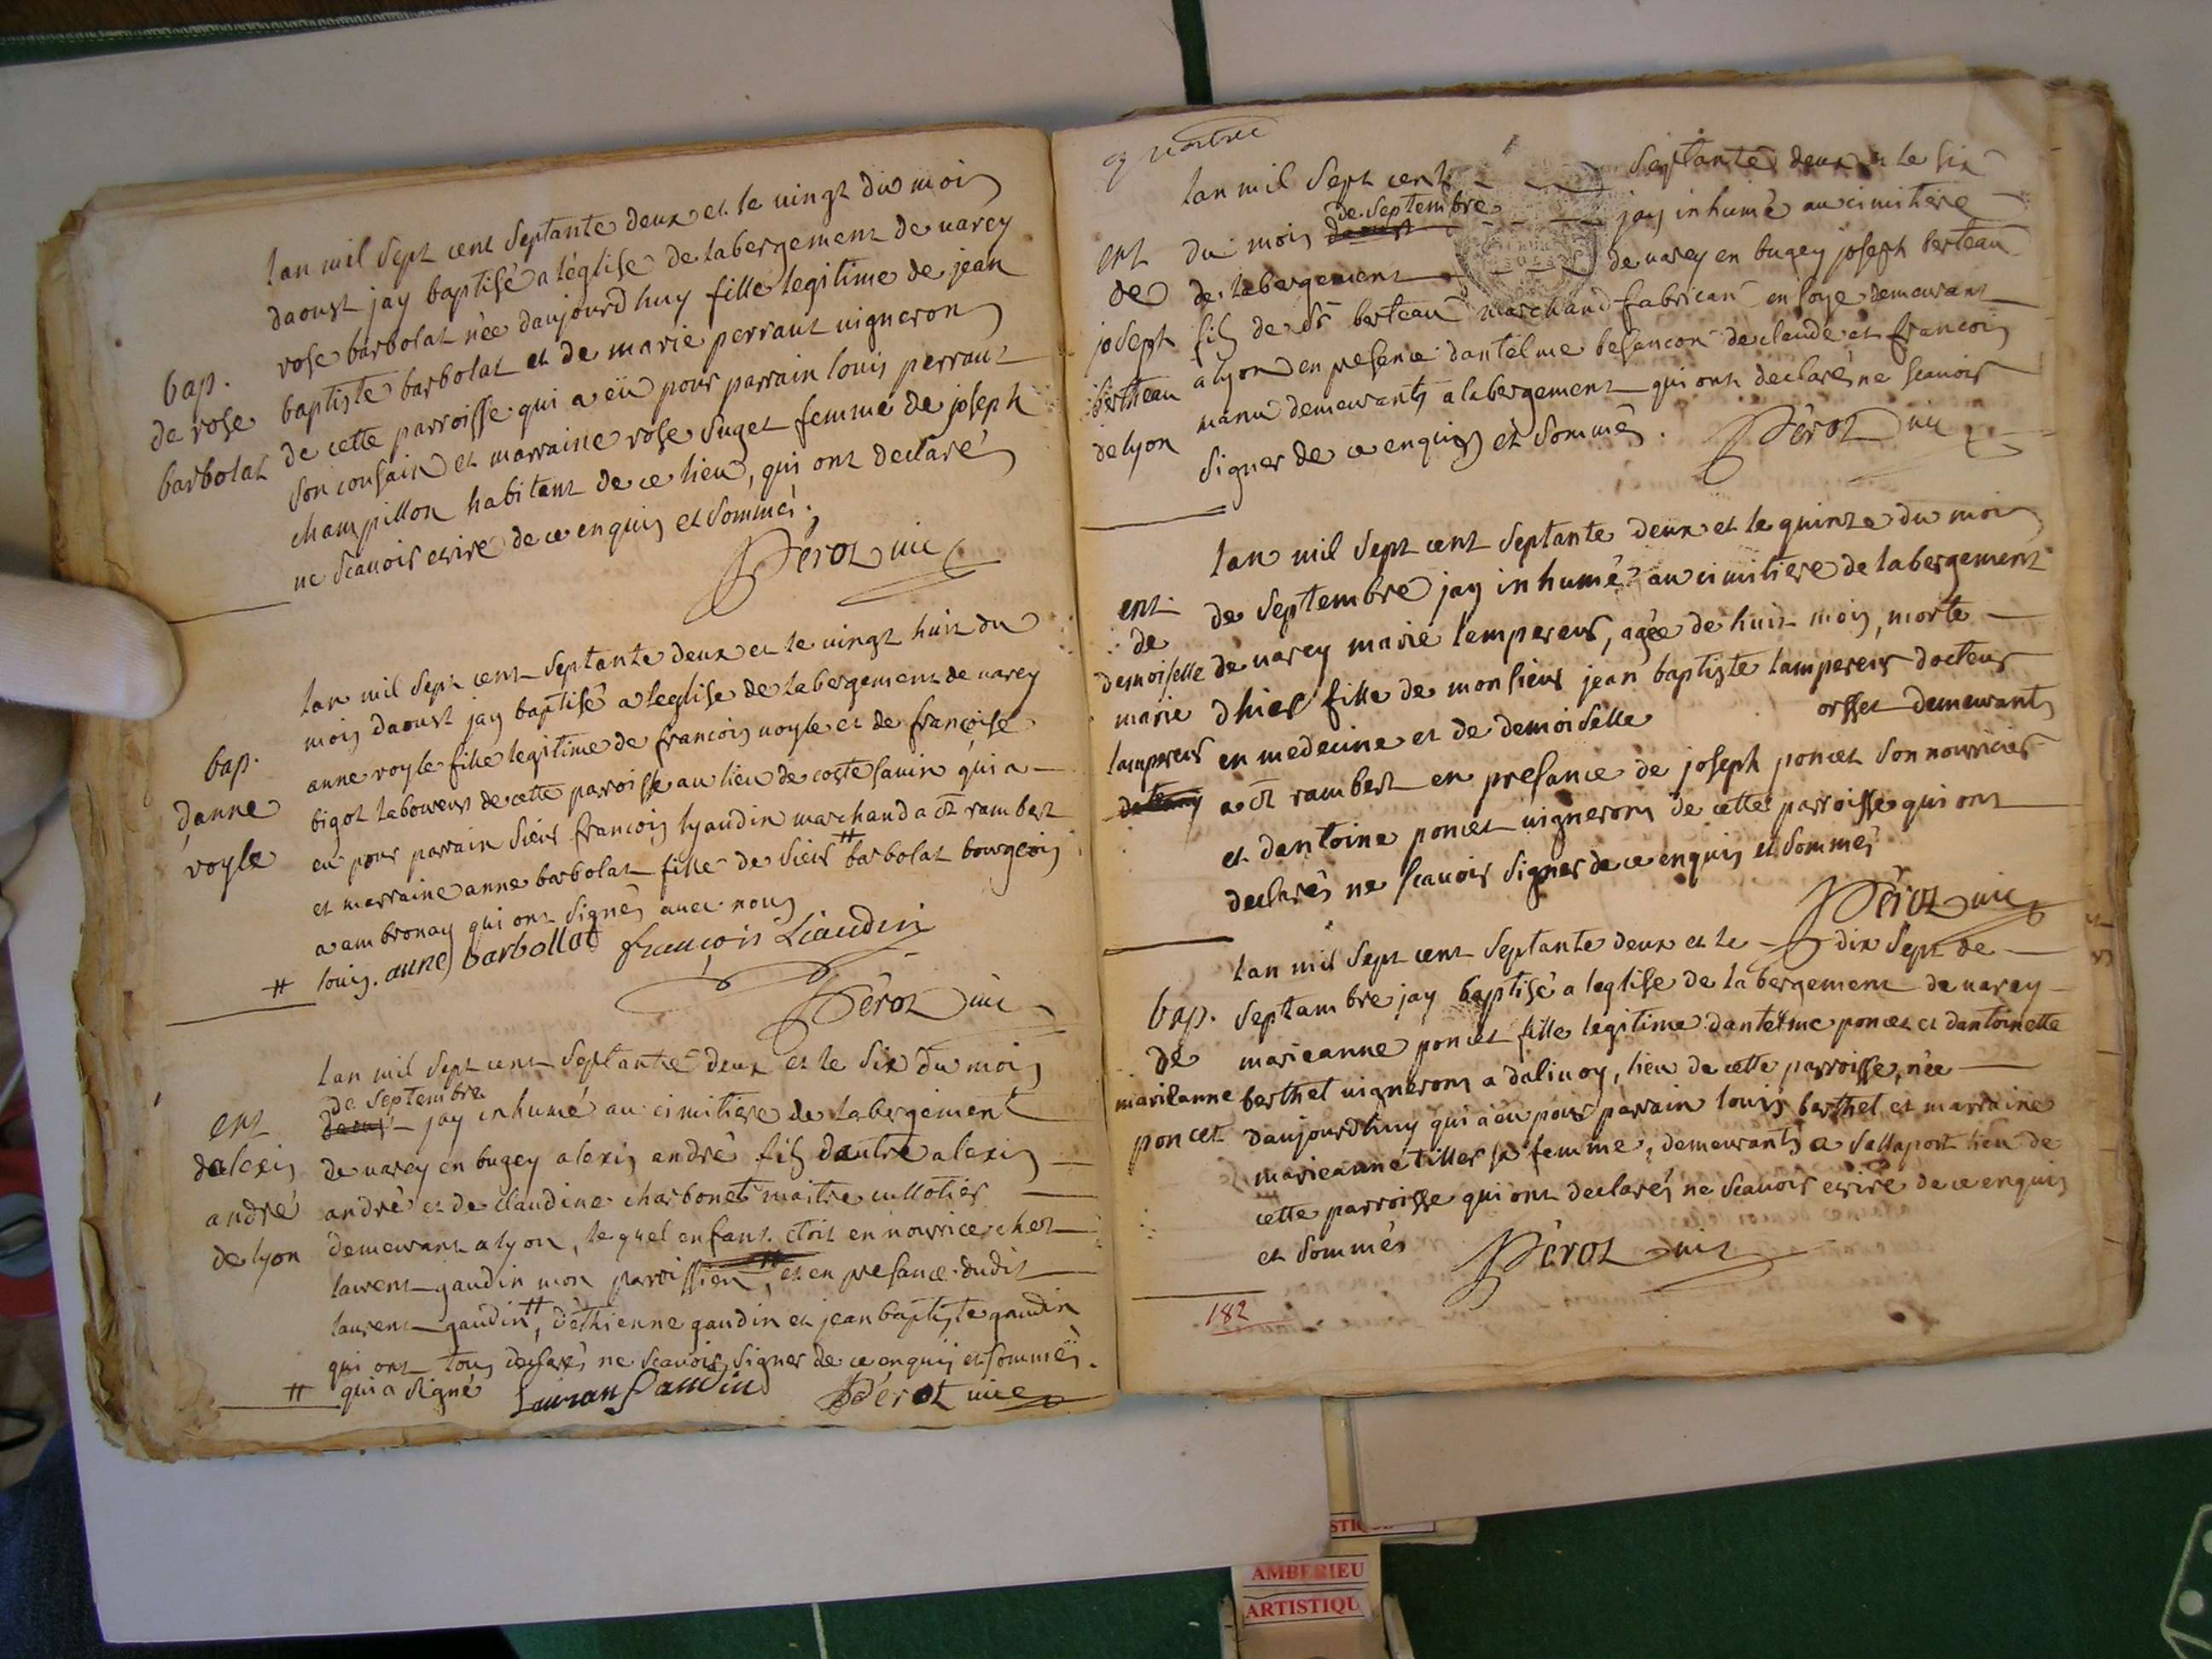 lan mil sept cent septante deux et le vingt du mois
daoust jay baptisé a léglise de labergement de varey
rose barbolat née daujourdhuy fille legitime de jean
bap.
de rose
barbolat
baptiste barbolat et de marie perraut vigneron
de cette parroisse qui a eü pour parrain louis perraut
son cousain et marraine rose suget femme de joseph
champillon habitant de ce lieu, qui ont declaré
ne scavoir ecrire de ce enquis et sommés.
Pérot vic
lan mil sept cent septante deux et le vingt huit du
mois daoust jay baptisé a leglise de labergement de varey
bap.
danne
voyle
anne voyle fille legitime de francois voyle et de françoise
bigot laboureur de cette parroisse au lieu de coste savin qui a
eü pour parrain sieur francois lyaudin marchand a st rambert
et marraine anne barbolat fille de sieur # barbolat bourgeois
a ambronay qui ont signés avec nous
# louis. anne barbollat françois Liaudin
Pérot vic
lan mil sept cent septante deux et le six du mois
de septembre
daoust jay inhumé au cimitiere de labergement
ent
dalexis
andré
de lyon
de varey en bugey alexis andré fils dautre alexis
andré et de claudine charbonet maitre cullotier
demeurant a lyon, lequel enfant etoit en nourrice chez
laurent gaudin mon paroissien, et en presance dudit
laurent gaudin #, déthienne gaudin et jean baptiste gaudin
qui ont tous declarés ne scavoir signer de ce enquis et sommés.
# qui a signé Lauran Gaudin Pérot vic
lan mil sept cent septante deux et le six
de septembre
du mois daoust jay inhumé au cimitiere
ent
de
joseph
bertheau
de lyon
de labergement de varey en bugey joseph berteau
fils de sr berteau marchand fabricant en soye demeurant
a lyon en presence dantelme besancon de claude et francois
demeurants a labergement qui ont declarés ne scavoir
signer de ce enquis et sommés. Pérot vic
lan mil sept cent septante deux et le quinze du mois
de septembre jay inhumé au cimitiere de labergement
ent
de
demoiselle
marie
lampereur
de varey marie lempereur, agée de huit mois, morte
dhier fille de monsieur jean baptiste lampereur docteur
en medecine et de demoiselle orsset demeurants
a st rambert en presance de joseph poncet son nourricier
et dantoine poncet vignerons de cette parroisse qui ont
declarés ne scavoir signer de ce enquis et sommés
Pérot vic
lan mil sept cent septante deux et le dix sept de
septambre jay baptisé a leglise de labergement de varey
bap.
de
marieanne
poncet
marieanne poncet fille legitime dantelme poncet et dantoinette
berthet vignerons a dalivoy, lieu de cette parroisse, née
daujourdhuy qui a eu pour parrain louis berthet et marraine
marieanne tiller sa femme, demeurants a sallaport lieu de
cette parroisse qui ont declarés ne scavoir ecrire de ce enquis
et sommés Pérot vic
182
AMBERIEU
ARTISTIQU